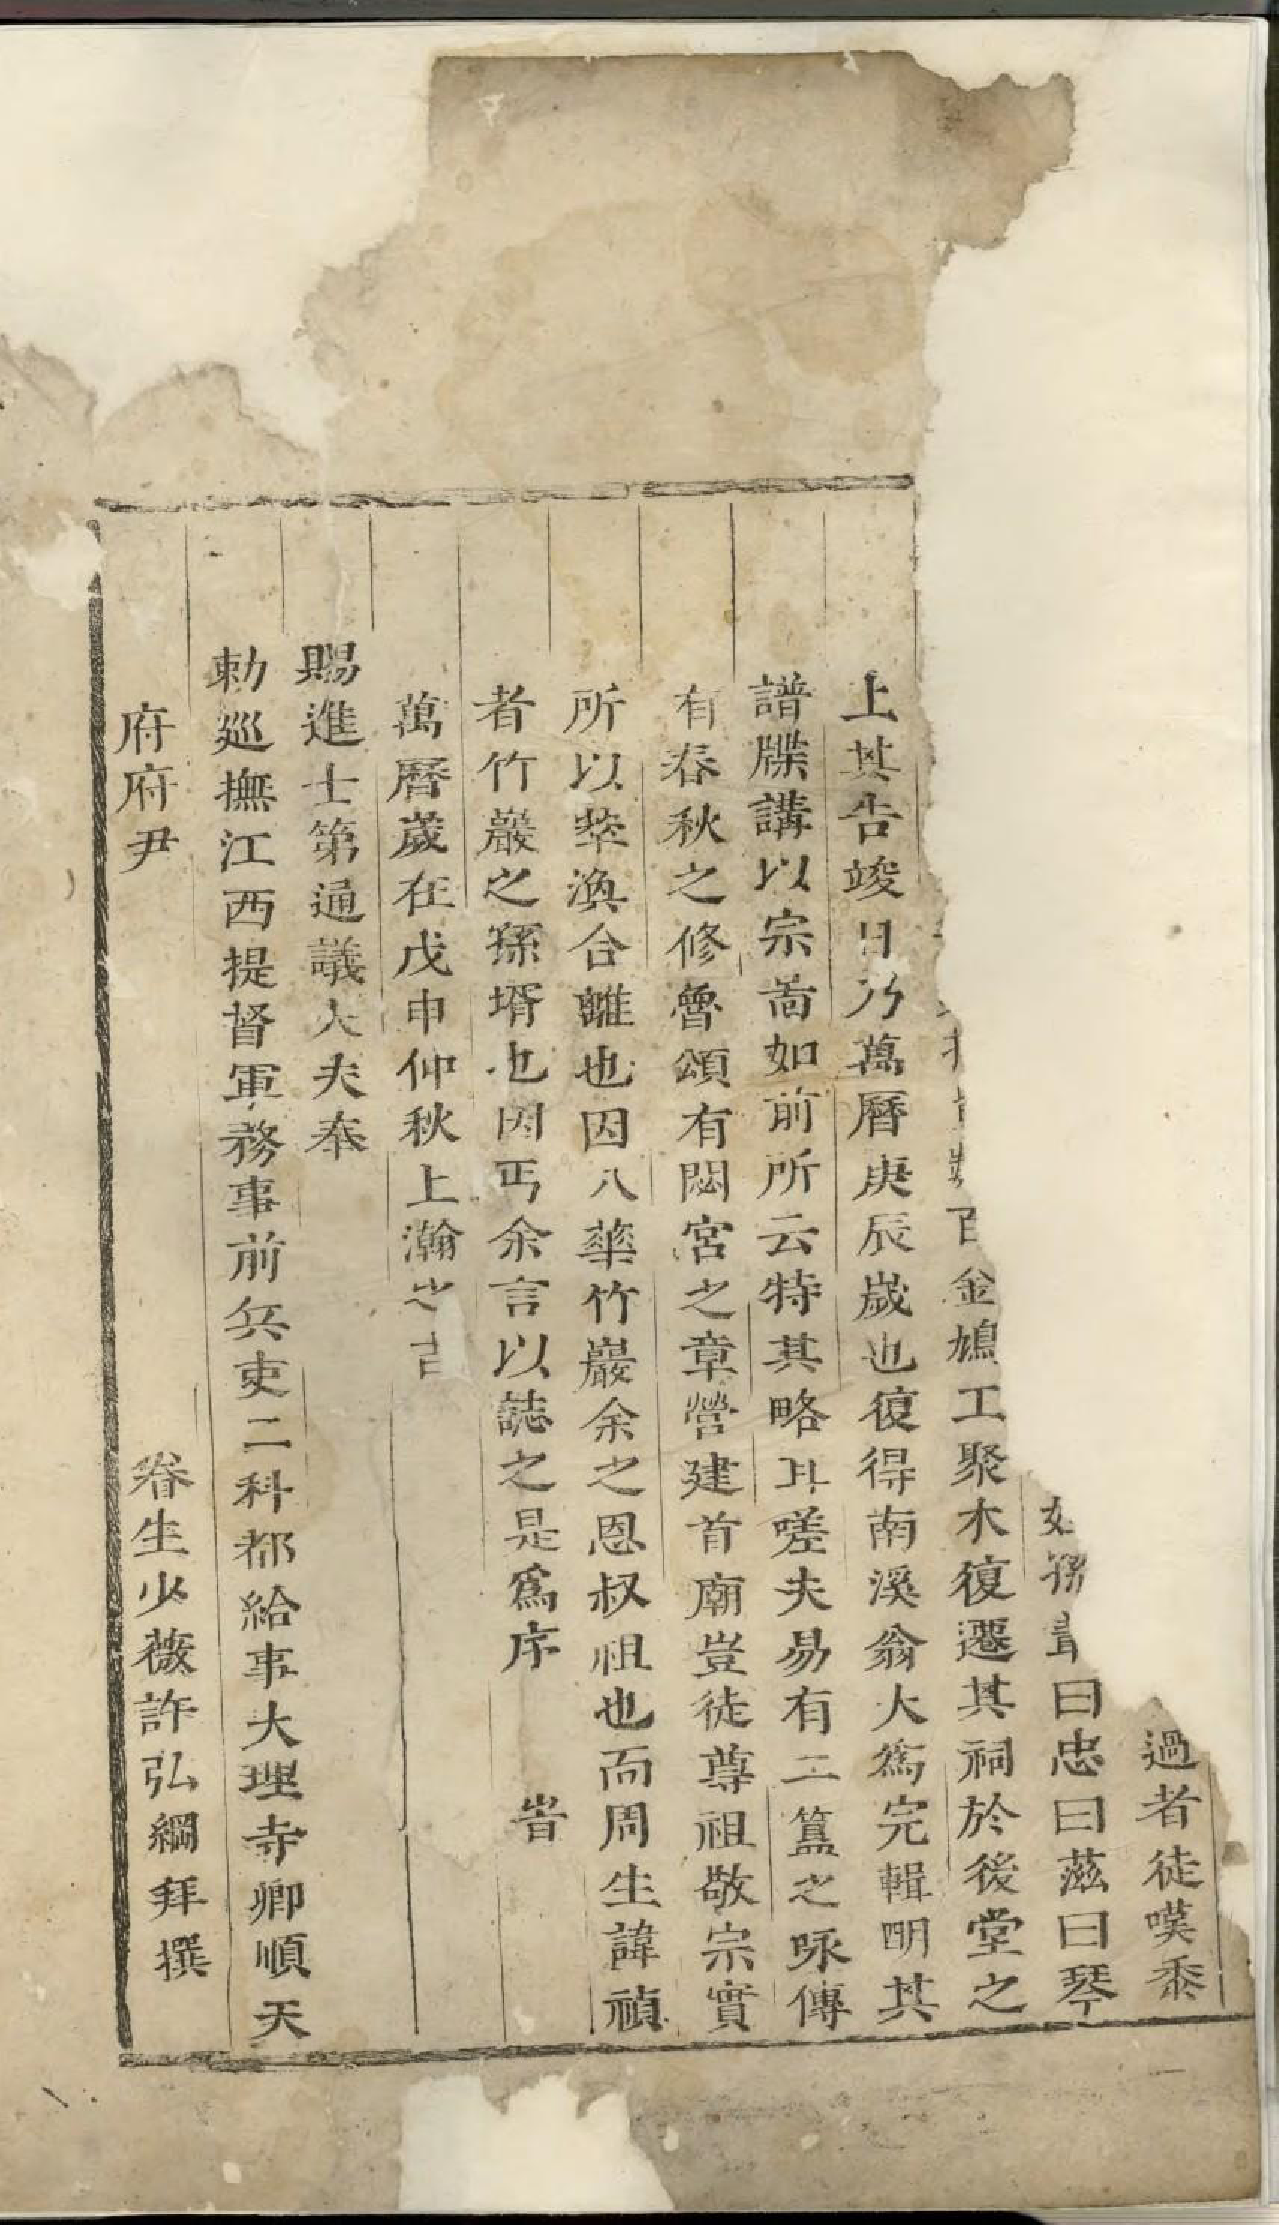 過者徒嘆黍
孫 曰忠曰茲曰琴
百金鳩工聚木復遷其祠於後堂之
上其告竣日乃萬曆庚辰歲也復得南溪翁大為完輯明其
譜牒講以宗啚如前所云特其略耳嗟夫易有二簋之咏傳
有春秋之修魯頌有閟宮之章營建首廟豈徒尊祖敬宗實
所以萃渙合雖也因八華竹巖余之恩叔祖也而周生諱禎
者竹巖之孫壻也因丐余言以誌之是爲序 旹
萬曆歲在戊申仲秋上瀚之吉
賜進士第通議大夫奉
勅巡撫江西提督軍務事前兵吏二科都給事大理寺卿順天
府府尹 眷生少薇許弘綱拜撰